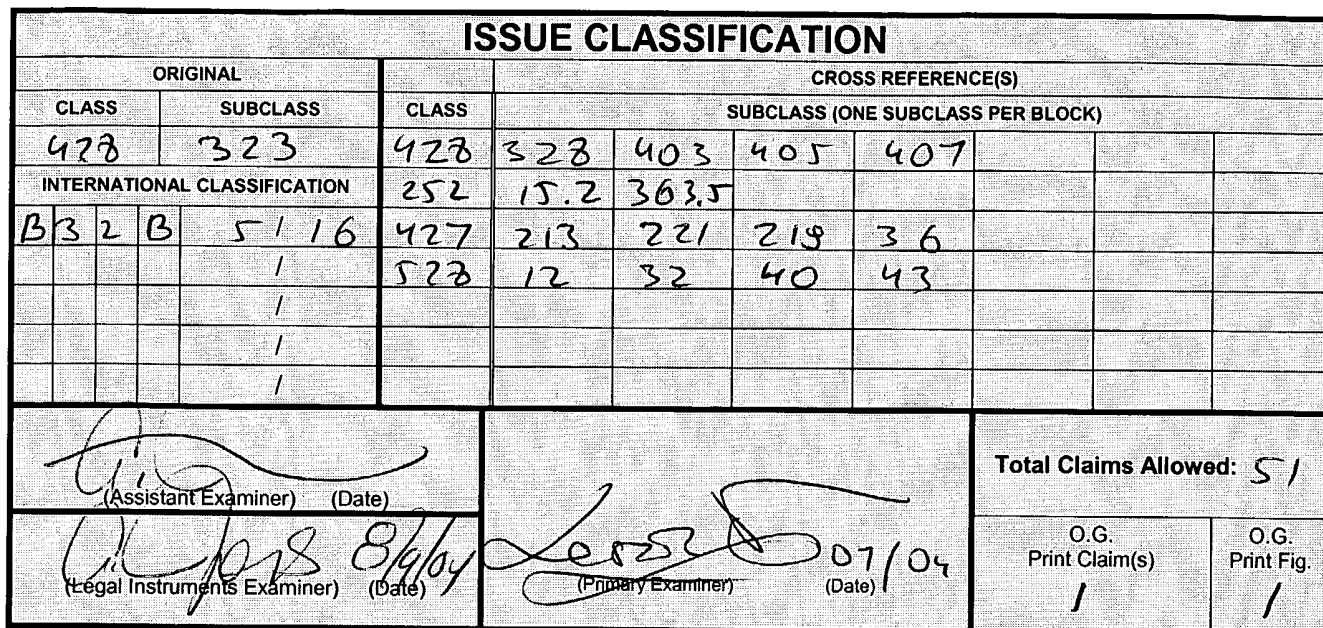 ISSUE CLASSIFICATION
ORIGINAL CROSS REFERENCE(S)
CLASS SUBCLASS CLASS SUBCLASS (ONE SUBCLASS PER BLOCK)
428 323 428 328 403 405 407
INTERNATIONAL CLASSIFICATION 252 15.2 363.5
B 3 2 B 5 / 16 427 213 221 219 36
/ 528 12 32 40 43
/
/
/
Total Claims Allowed: 51
(Assistant Examiner) (Date)
8/9/04 07/04
(Legal Instruments Examiner) (Date) (Primary Examiner) (Date)
O.G. Print Claim(s) O.G. Print Fig.
1 1